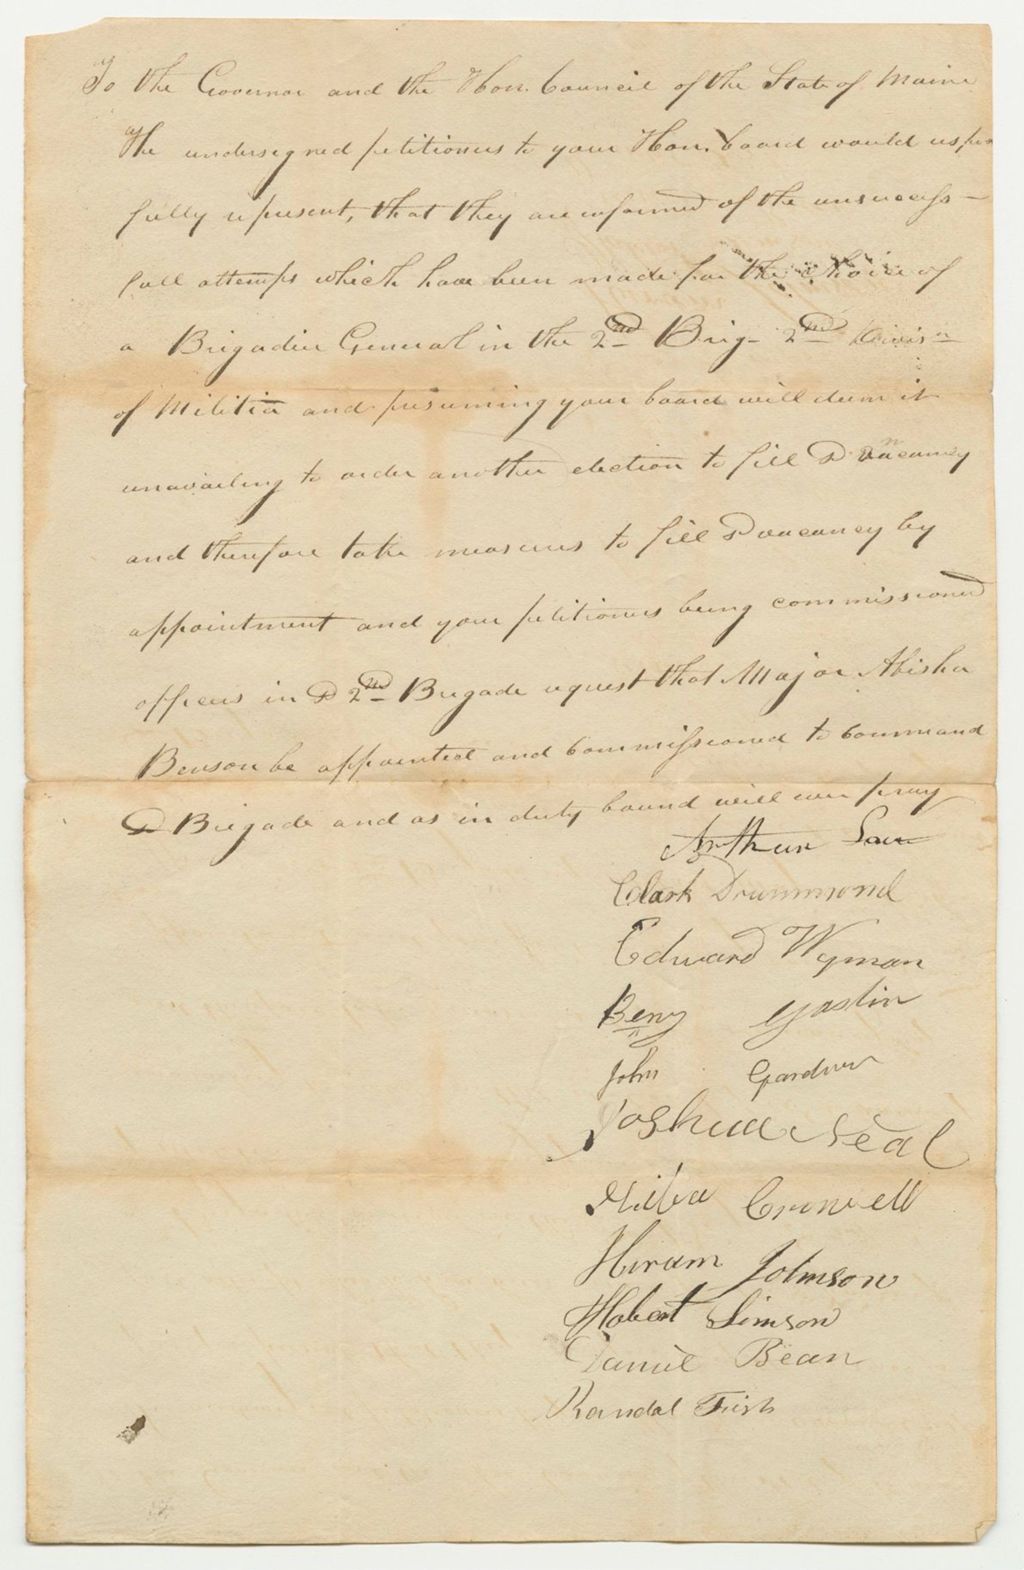 To the Governor and the Hon. Council of the State of Maine
The undersigned petitioners to your Hon. board would respect
fully represent, that they are informed of the unsuccess-
full attemps which have been made for the choice of
a Brigadier General in the 2nd Brig- 2nd Divisn
of Militia and presuming your board will deem it
unavailing to order another election to fill sd vacancy
and therefore take measures to fill sd vacancy by
appointment and your petitioners being commissioned
officers in sd 2nd Brigade request that Major Abisha
Benson be appointed and Commissioned to command
sd Brigade and as in duty bound will ever pray
Arthur
Clark Drummond
Edward Wyman
Benj
John Gardner
Joshua Neal
Crowell
Hiram Johnson
Robert Simson
Daniel Bean
Randal Fish